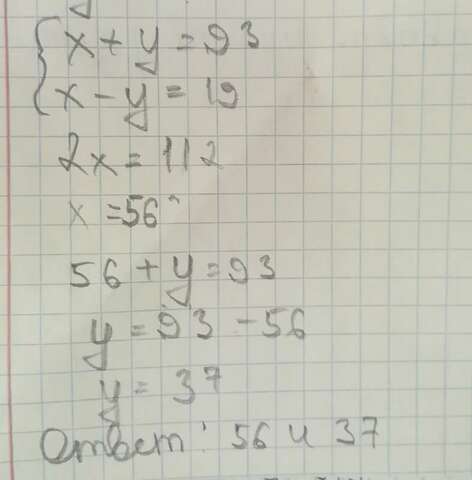 {x + y = 93
x - y = 19
2x = 112
x = 56
56 + y = 93
y = 93 - 56
y = 37
Ответ: 56 и 37